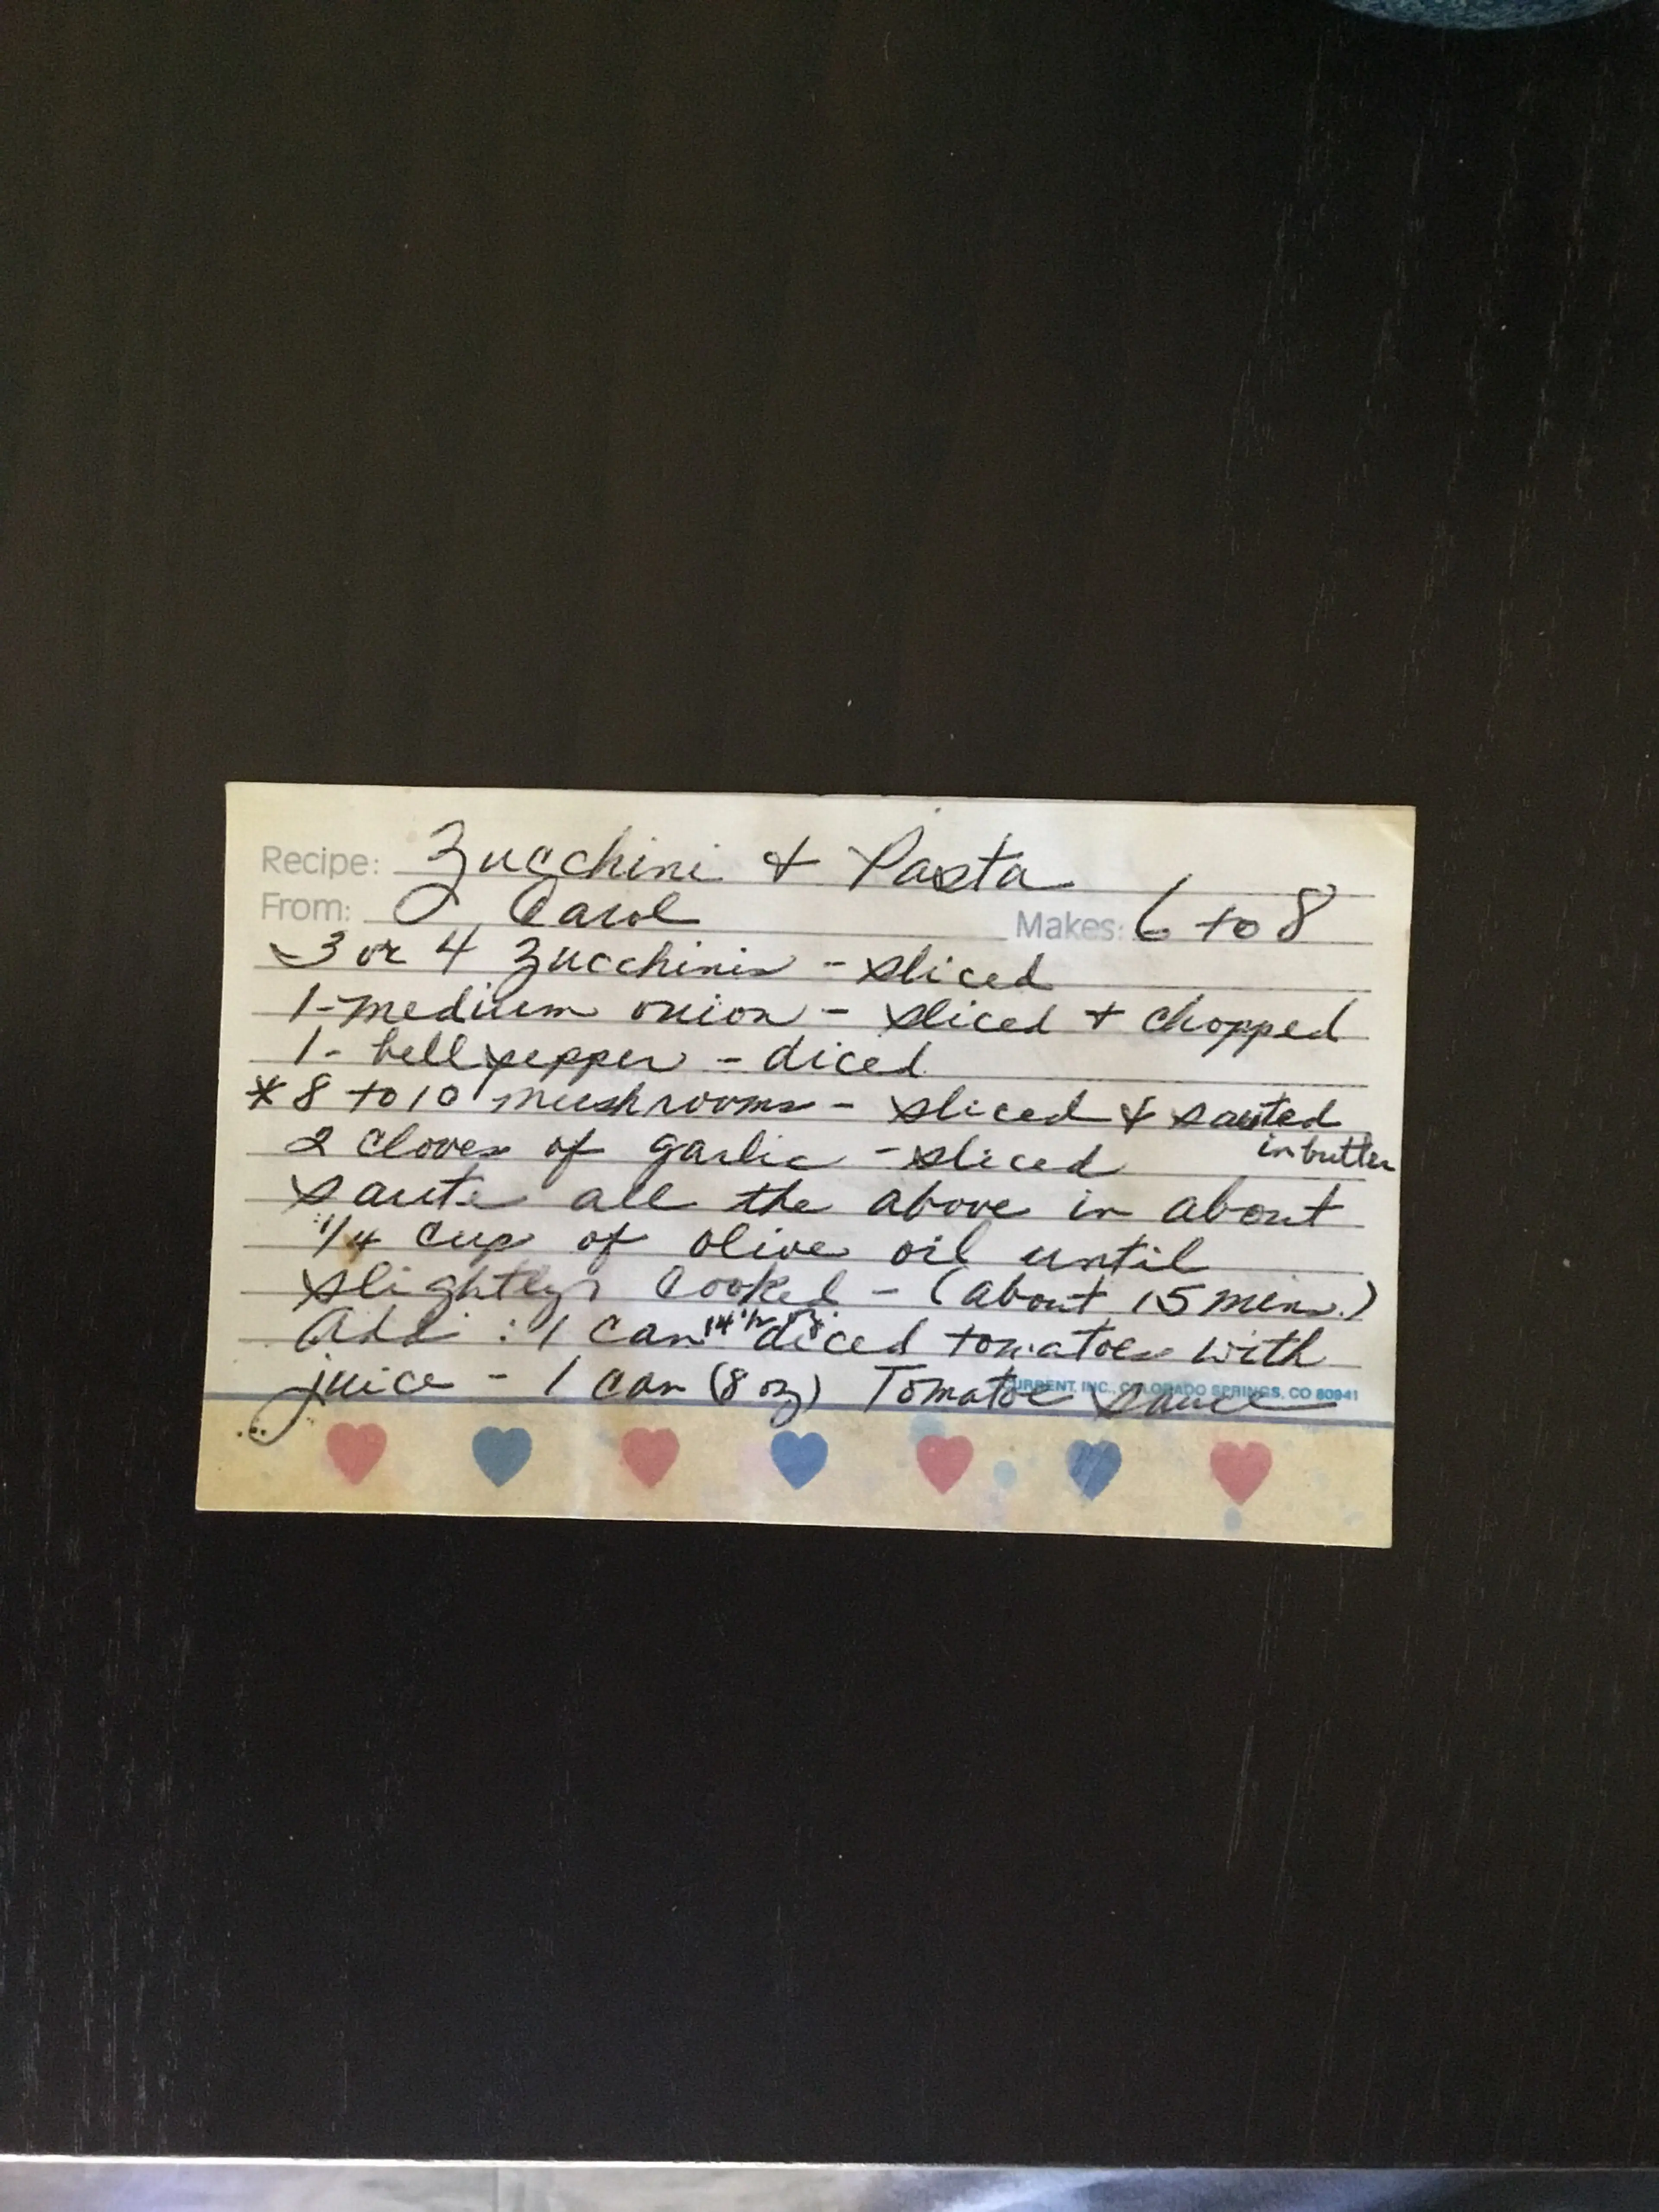 Recipe: Zucchini + Pasta
From: Carol Makes: 6 to 8
3 or 4 zucchinis - sliced
1-medium onion - sliced + chopped
1- bell pepper - diced
* 8 to 10 mushrooms - sliced & sauted
in butter
2 cloves of garlic - sliced
saute all the above in about
1/4 cup of olive oil until
slightly cooked - (about 15 mins.)
Add : 1 can 14 1/2 oz diced tomatoes with
juice - 1 can (8 oz) Tomatoe sauce
CURRENT, INC., COLORADO SPRINGS, CO 80941